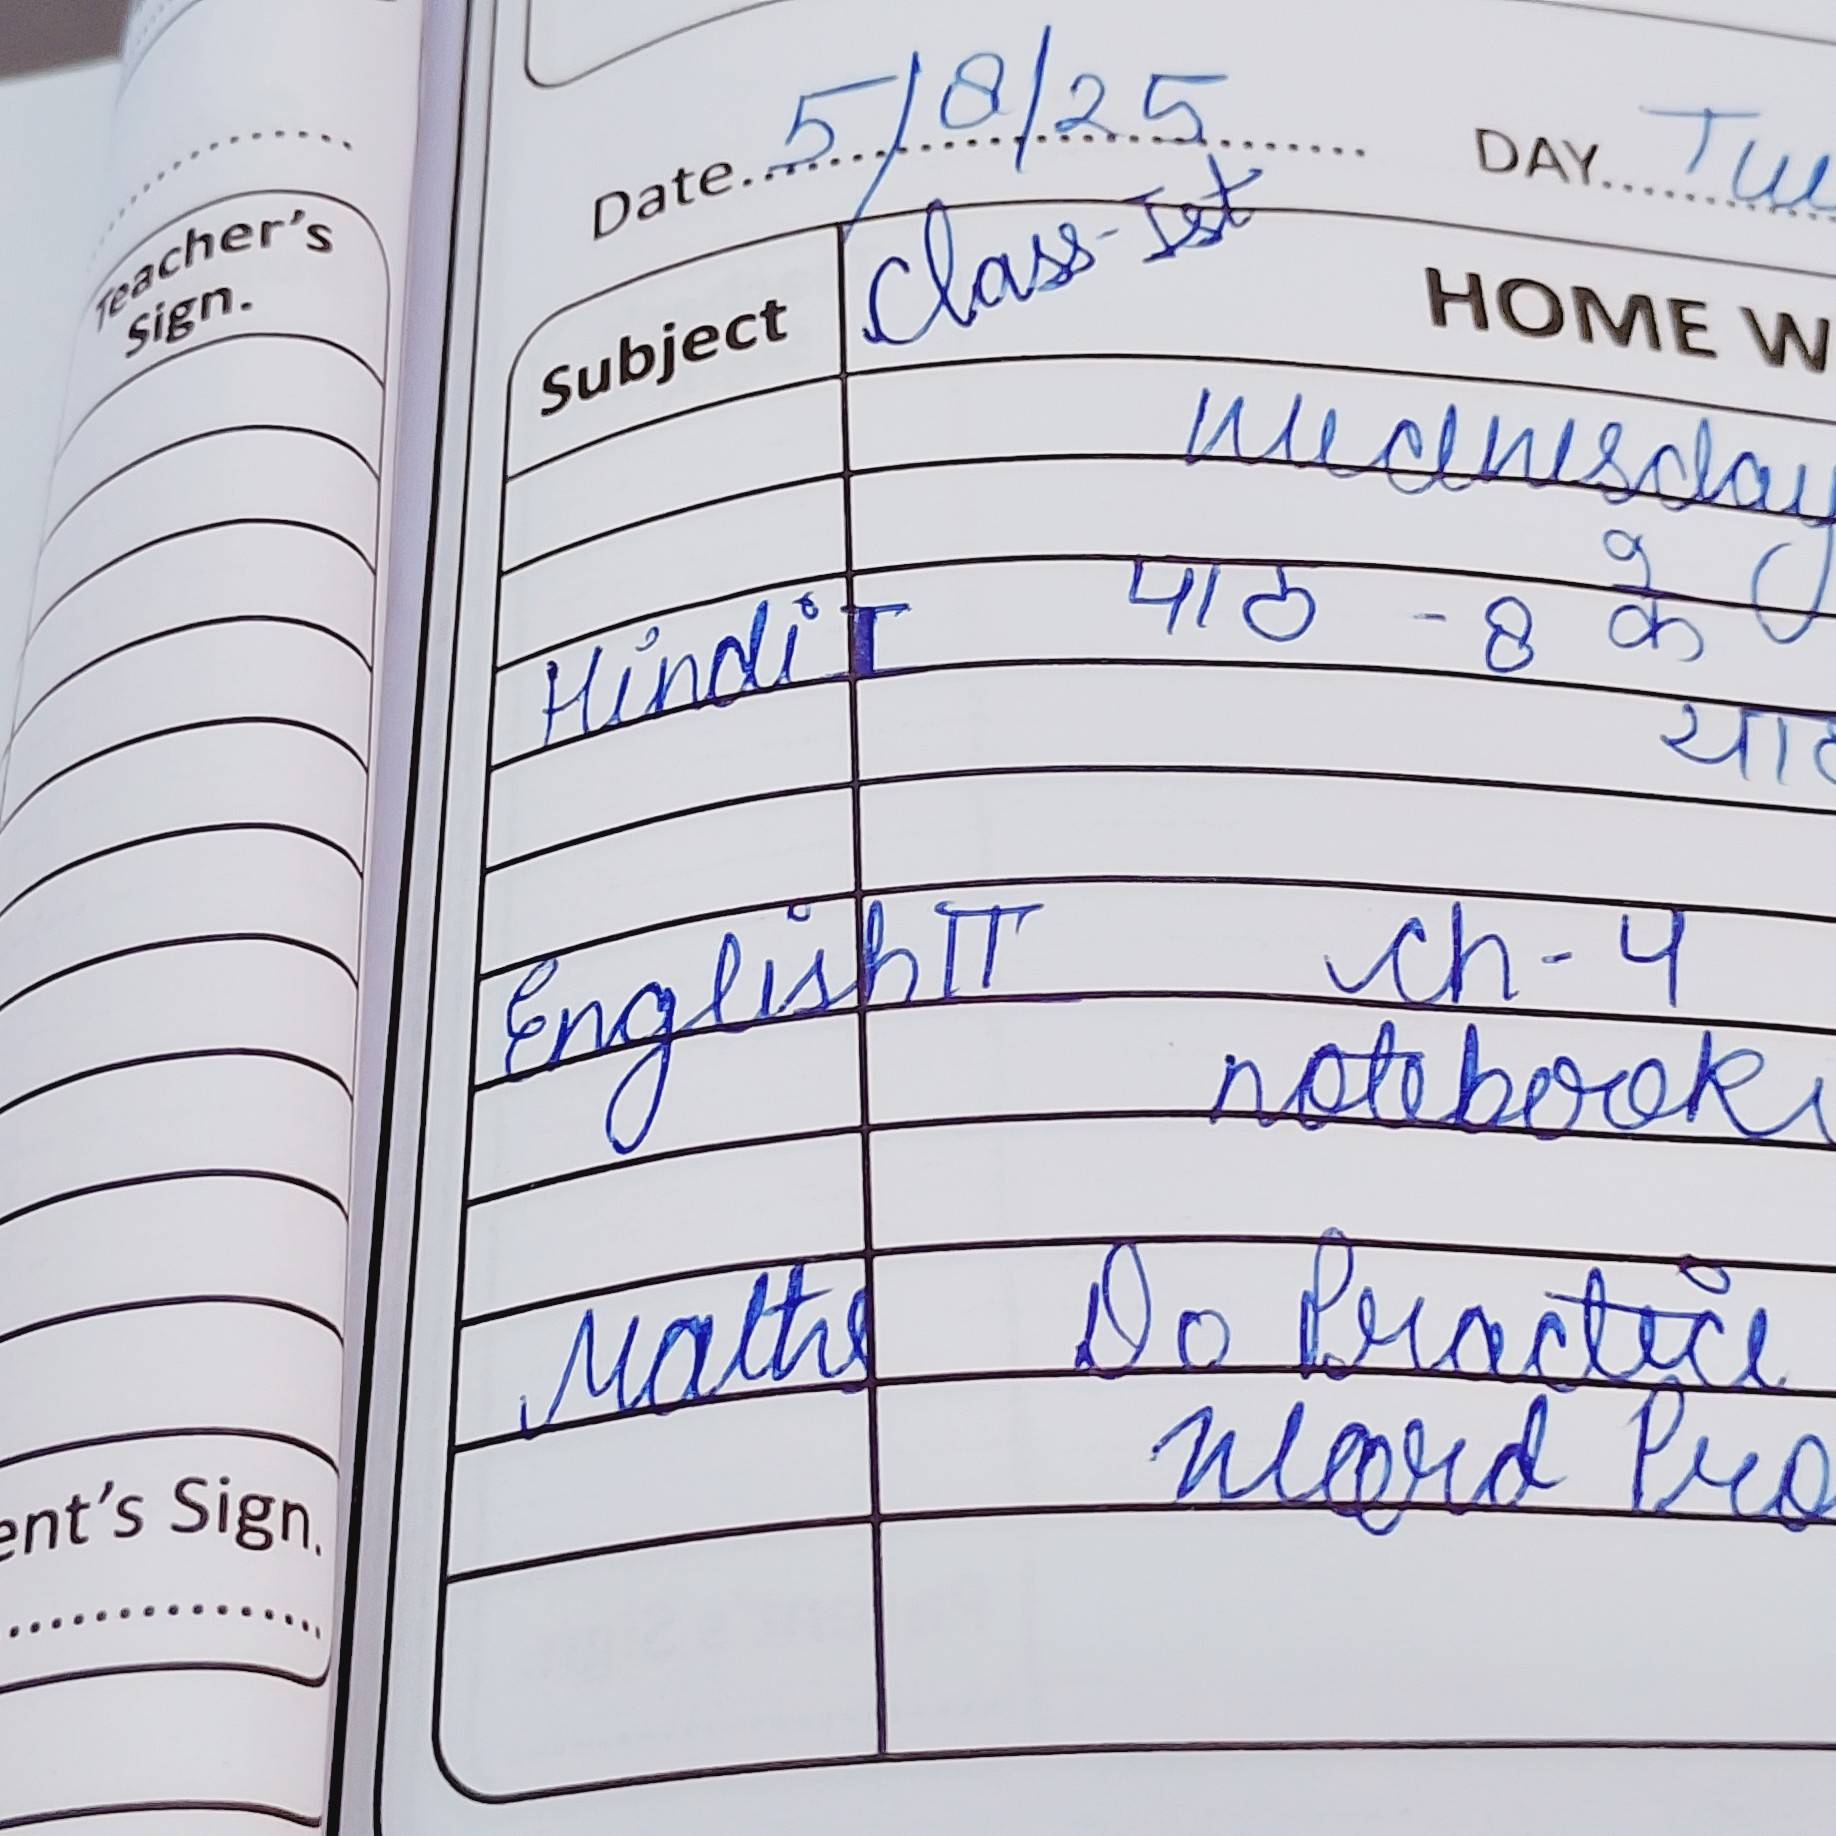 Date 5/8/25 DAY
Teacher's
Sign.
Subject Class-Ist HOME
Wednesday
Hindi I पाठ -8 के
English II Ch-4
notebook
Maths Do Practice
Word
Sign.